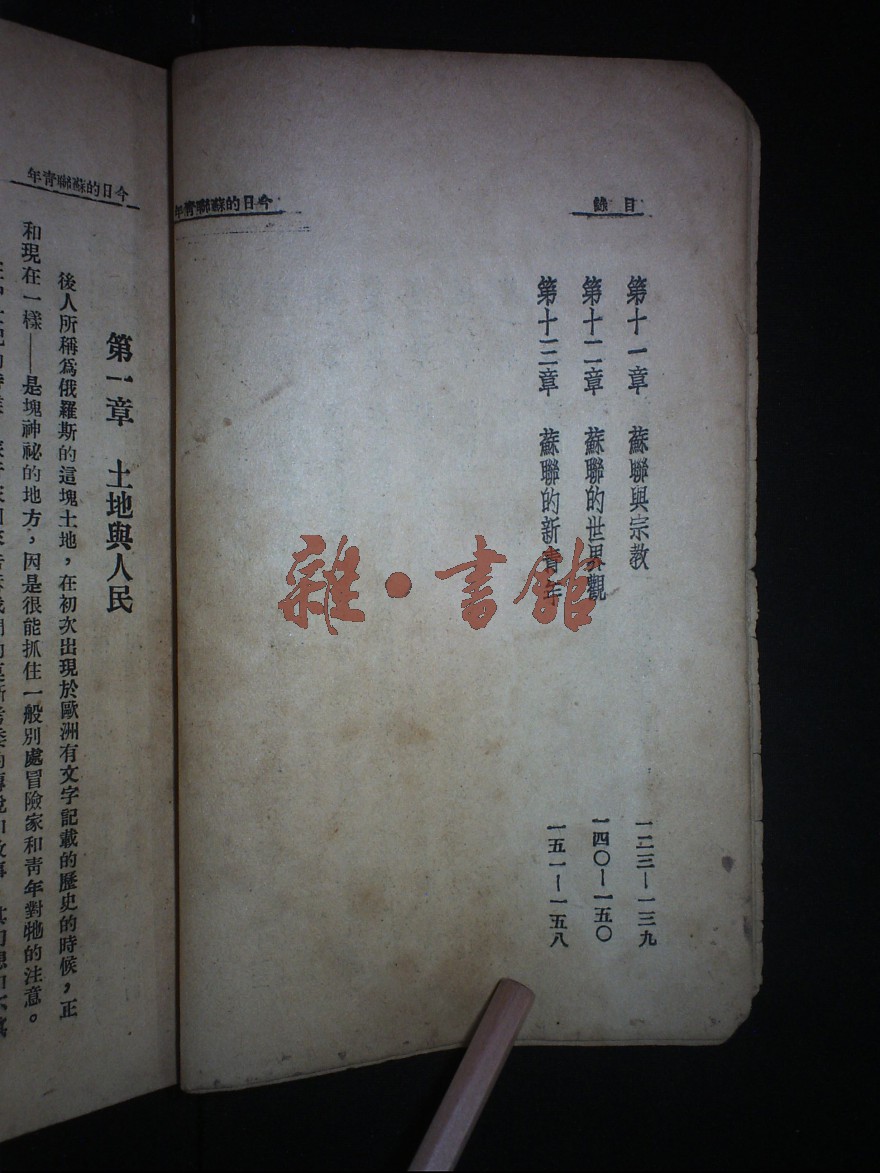 目錄
今日的蘇聯青年
第十一章 蘇聯與宗教 一二三—一三九
第十二章 蘇聯的世界觀 一四〇—一五〇
第十三章 蘇聯的新青年 一五一—一五八
雜·書館
今日的蘇聯青年
第一章 土地與人民
後人所稱為俄羅斯的這塊土地，在初次出現於歐洲有文字記載的歷史的時候，正
和現在一樣——是塊神祕的地方，因是很能抓住一般別處冒險家和青年對牠的注意。